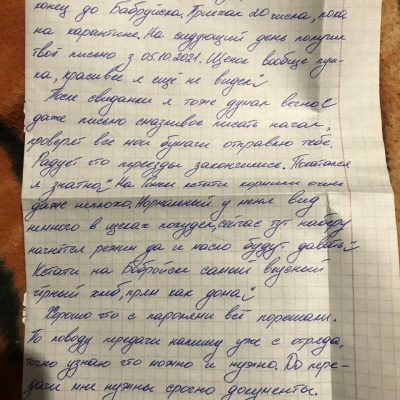 конец до Бабруйска. Приехал 20 числа, пока
на карантине. На следующий день получил
твоё письмо з 05.10.2021. Щенок вообще пуш-
ка, красивее я ещё не видел
После свидания я тоже думал весной
даже письмо писать начал,
проверят все мои бумаги отправлю тебе.
Радует что переезды закончились. Покатался
я знатно На кстати кормили очень
даже неплохо. Нормальный у меня вид
немного в щеках похудел, сейчас тут наберу
начнётся режим да и масло будут давать
Кстати на Бобруйске самый вкусный
чёрный хлеб, прям как дома
Хорошо что с паролями всё порешали.
По поводу передачи напишу уже с отряда,
точно узнаю что можно и нужно. До пере-
дачи мне нужны срочно документы.